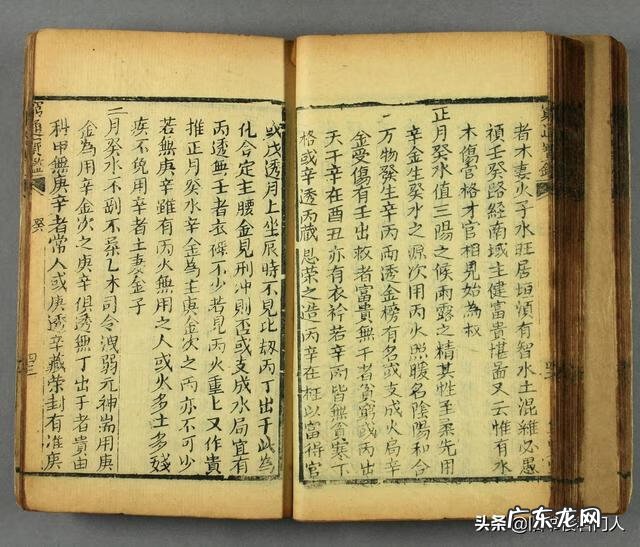 者木妻火子水旺居垣須有智水土混雜必愚
癸路經南域主健富貴堪啚又云惟有水
木傷官格才官相見始為权
正月癸水值三陽之候雨露之精其性至柔先用
辛金生癸水之源次用丙火照暖名陰陽和合
万物發生辛丙兩透金榜有名或支成火局辛
金受傷有壬出救者富貴無壬者貧窮或丙出
天干辛在酉丑亦有衣衿若辛丙皆無貧寒丁
格或辛透丙藏恩荣之造丙辛在柱以富得官
或戊透月上坐辰時不見比刼丙丁出干此為
化合定主腰金見刑冲則否或支成水局宜有
丙透無壬者衣祿不少若見丙火重重又作貴
推正月癸水辛金為主庚金次之丙亦不可少
若無庚辛雖有丙火無用之人或火多土多殘
疾不免用辛者土妻金子
二月癸水不剛不柔乙木司令洩弱元神耑用庚
金為用辛金次之庚辛俱透無丁出干者貴由
科甲無庚辛者常人或庚透辛藏荣封有准庚
窮通寶鑑
癸
头条
广东龙网